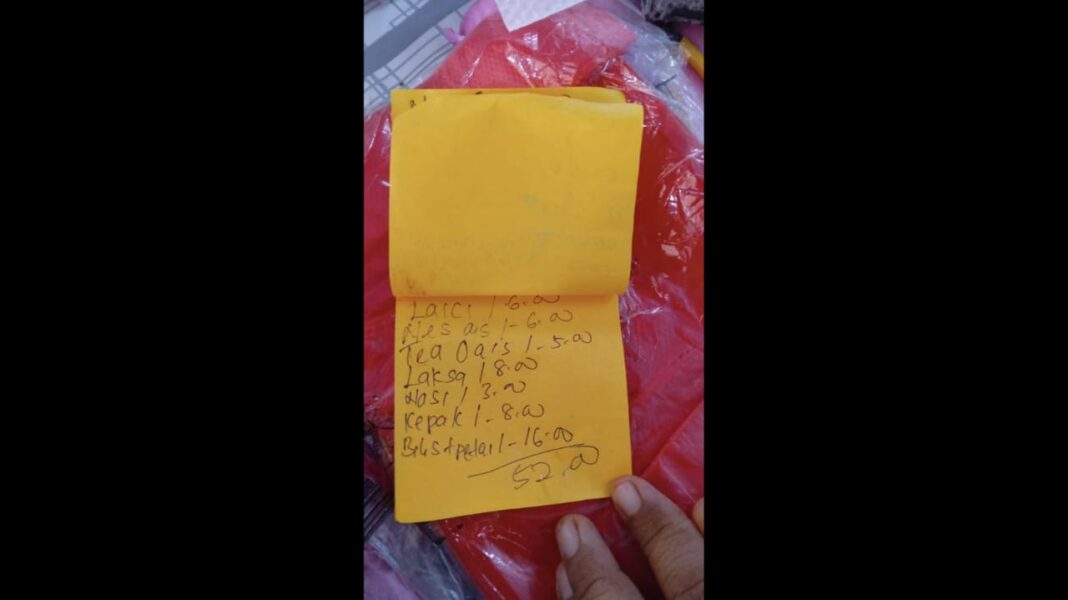 Laici / 6.00
Nes ais 1 - 6.00
Tea Oais 1 - 5.00
Laksa / 8.00
Nasi / 3.00
Kepak 1 - 8.00
Bilis+petai 1 - 16.00
52.00